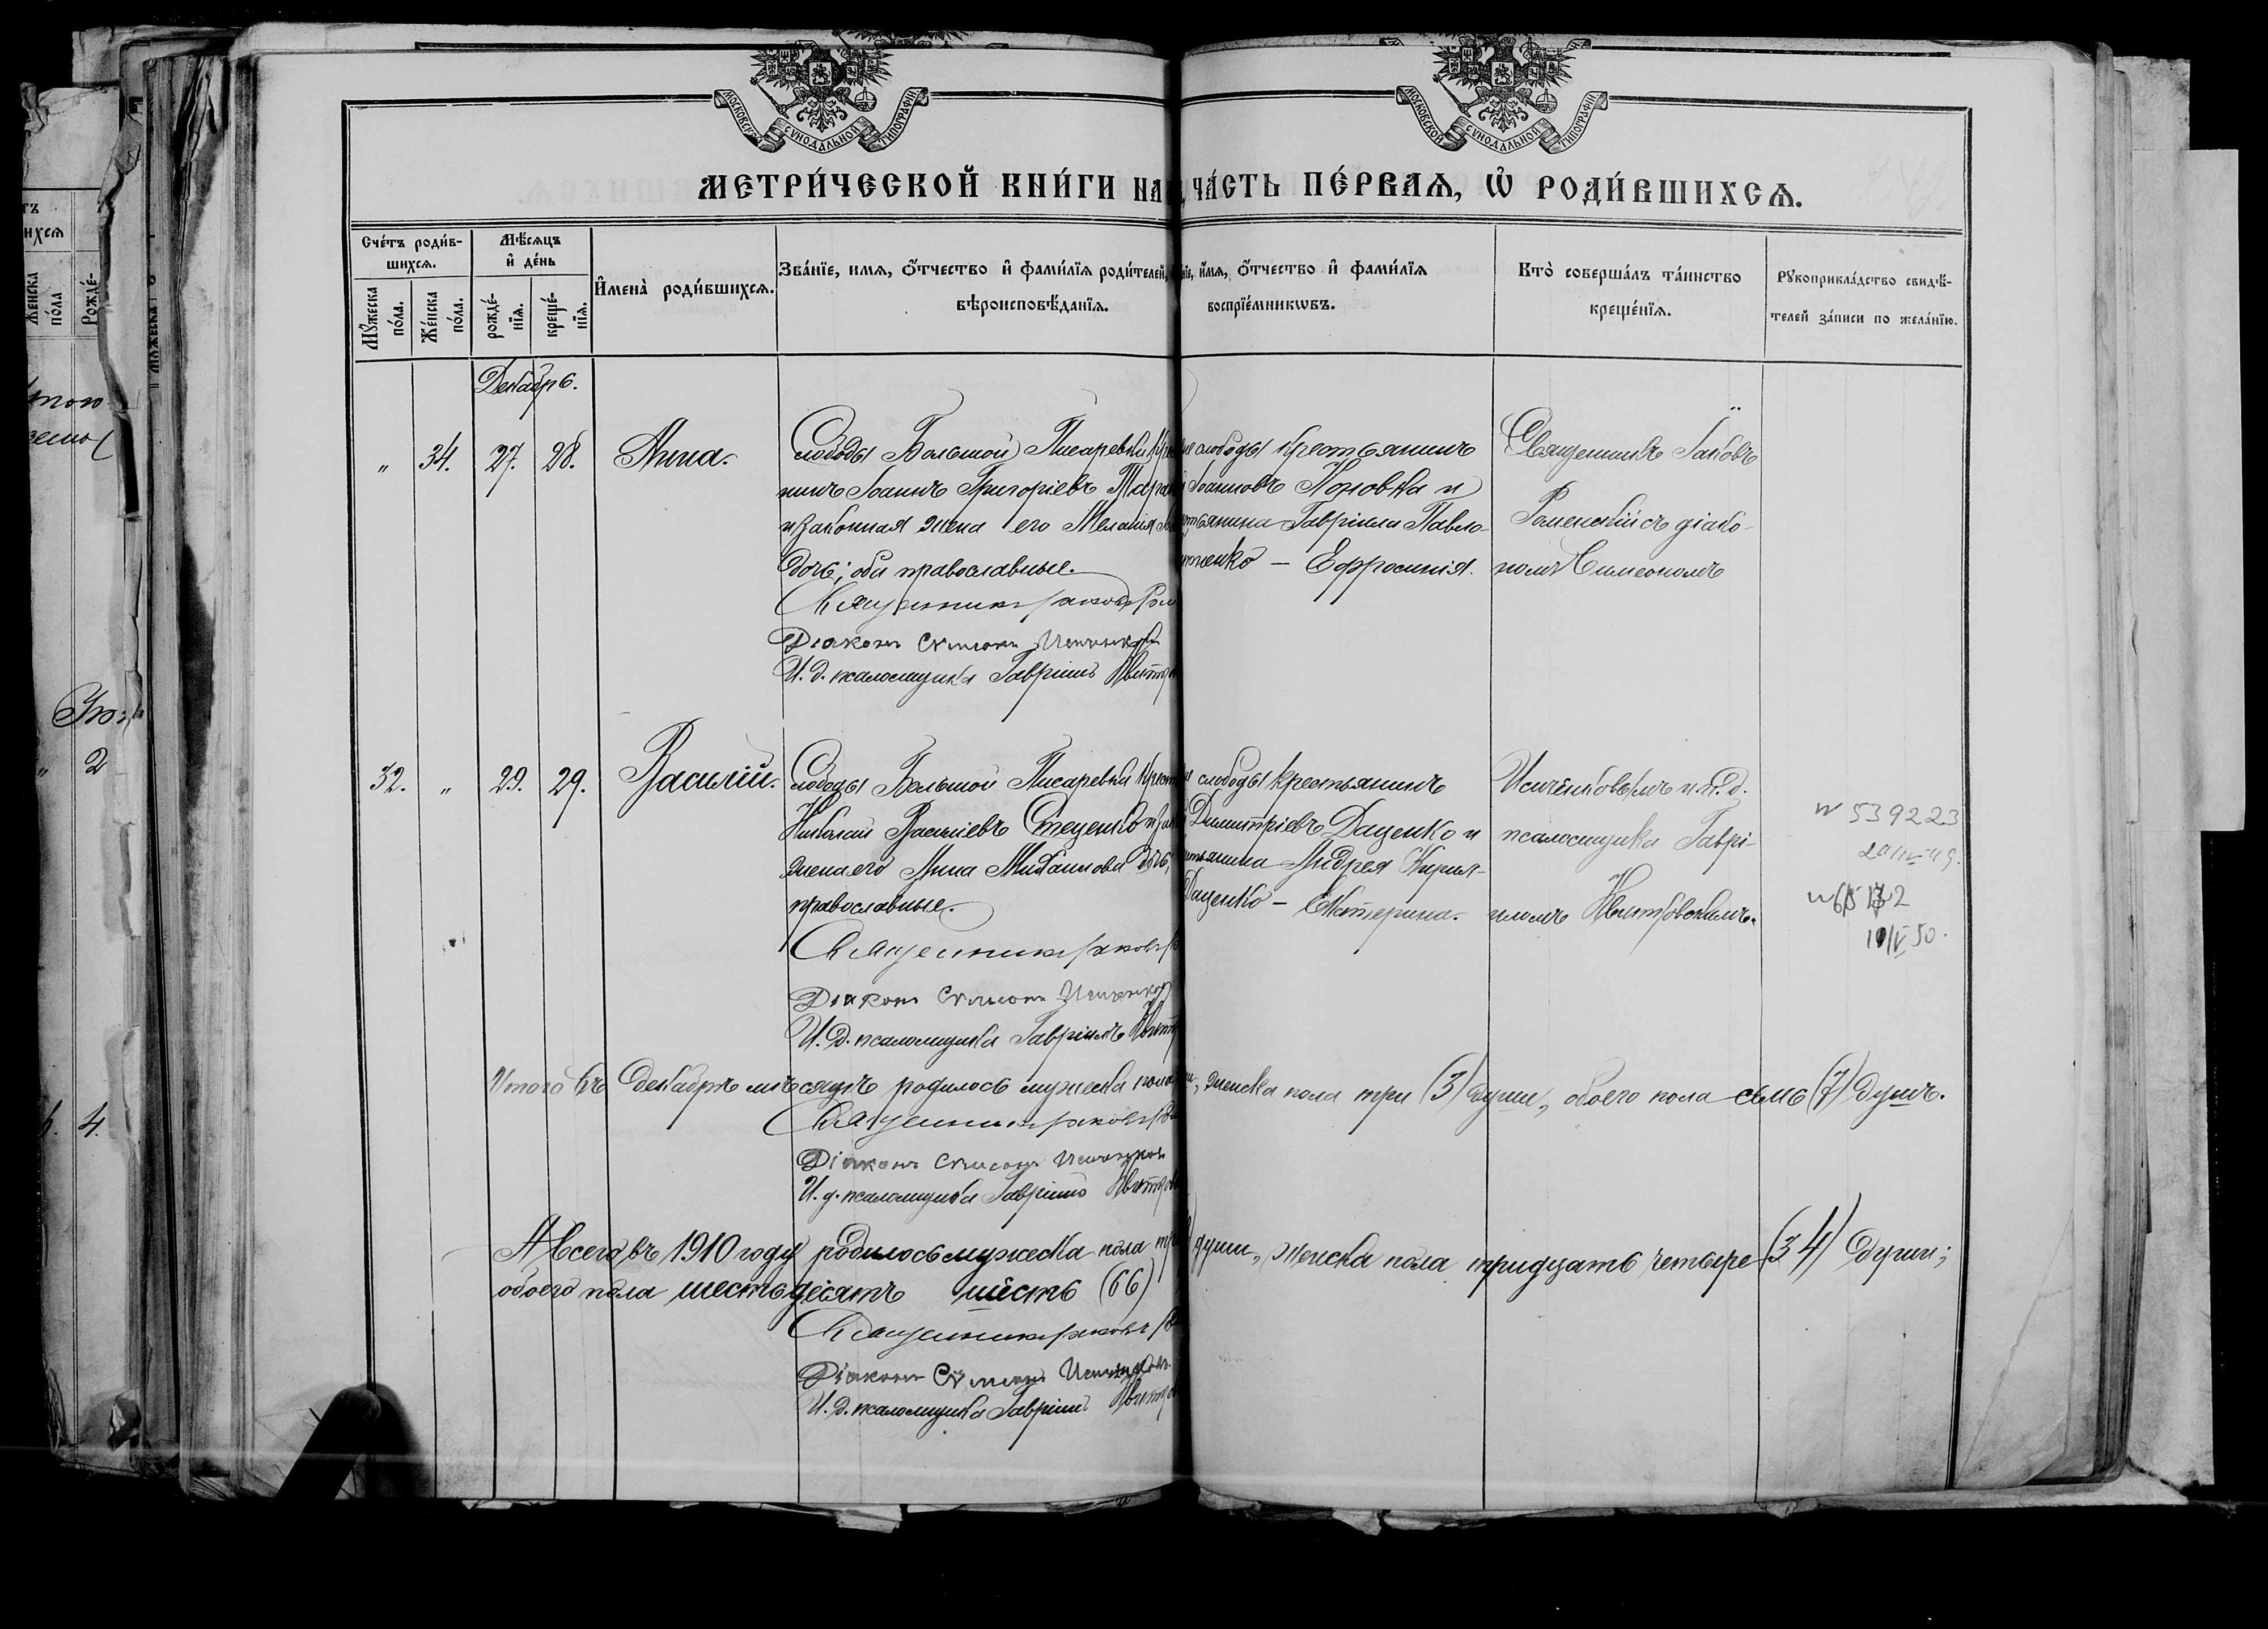 МОСКОВСКОЙ СѴНОДАЛЬНОЙ ТИПОГРАФІИ
МОСКОВСКОЙ СѴНОДАЛЬНОЙ ТИПОГРАФІИ
МЕТРИ́ЧЕСКОЙ КНИ́ГИ НА ЧА́СТЬ ПЕ́РВАѦ, Ѡ҆ РОДИ́ВШИХСѦ.
Сче́тъ роди́в-
шихсѧ.
Мꙋ́жеска по́ла.
Же́нска по́ла.
Мѣ́сѧцъ и҆ де́нь
рожде́-
нїѧ.
креще́-
нїѧ.
И҆мена̀ роди́вшихсѧ.
Зва́нїе, имѧ, ѻ҆́тчество и҆ фами́лїѧ роди́телей,
вѣроисповѣ́данїѧ.
нїе, и҆́мѧ, ѻ҆́тчество и҆ фами́лїѧ
воспрїе́мникѡвъ.
Кто̀ соверша́лъ та́инство
креще́нїѧ.
Рꙋкоприкла́дство свидѣ́-
телей за́писи по жела́нїю.
Декабрь.
„ 34. 27. 28. Анна.
Слободы Большой Писаревки кре
нинъ Іоаннъ Григоріевъ Тара
и законная жена его Меланія
дочь; оба православные.
Священникъ Іаковъ Ром
Діаконъ Симеонъ Исиченков
И. д. псаломщика Гавріилъ Квитк
слободы крестьянинъ
Іоанновъ Коновка и
тьянина Гавріила Павло-
тенко — Ефросинія.
Священникъ Іаковъ
Роменскій съ діако-
номъ Симеономъ
32. „ 29. 29. Василій.
Слободы Большой Писаревки крест
Николай Василіевъ Стеценко и зак
жена его Анна Михаилова дочь,
православные.
Священникъ Іаковъ Р
Діаконъ Симеонъ Исиченков
И. д. псаломщика Гавріилъ Квит
слободы крестьянинъ
Димитріевъ Даценко и
тьянина Андрея Кирил-
Даценко — Екатерина.
Исиченковымъ и и. д.
псаломщика Гаврі-
иломъ
N 539223
10/V 50.
Итого въ декабрѣ мѣсяцѣ родилось мужеска пола
женска пола три (3) души, обоего пола семь (7) душъ.
Священникъ Іаковъ Р
Діаконъ Симеонъ Исиченков
И. д. псаломщика Гавріилъ
А всего въ 1910 году родилось мужеска пола тр
души, женска пола тридцать четыре (34) души;
обоего пола шестьдесятъ шесть (66)
Священникъ Іаковъ Р
Діаконъ Симеонъ Исиченков
И. д. псаломщика Гавріилъ